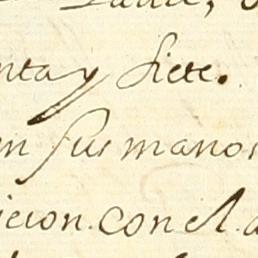 nta y siete.
en sus manos
icion. con el. a